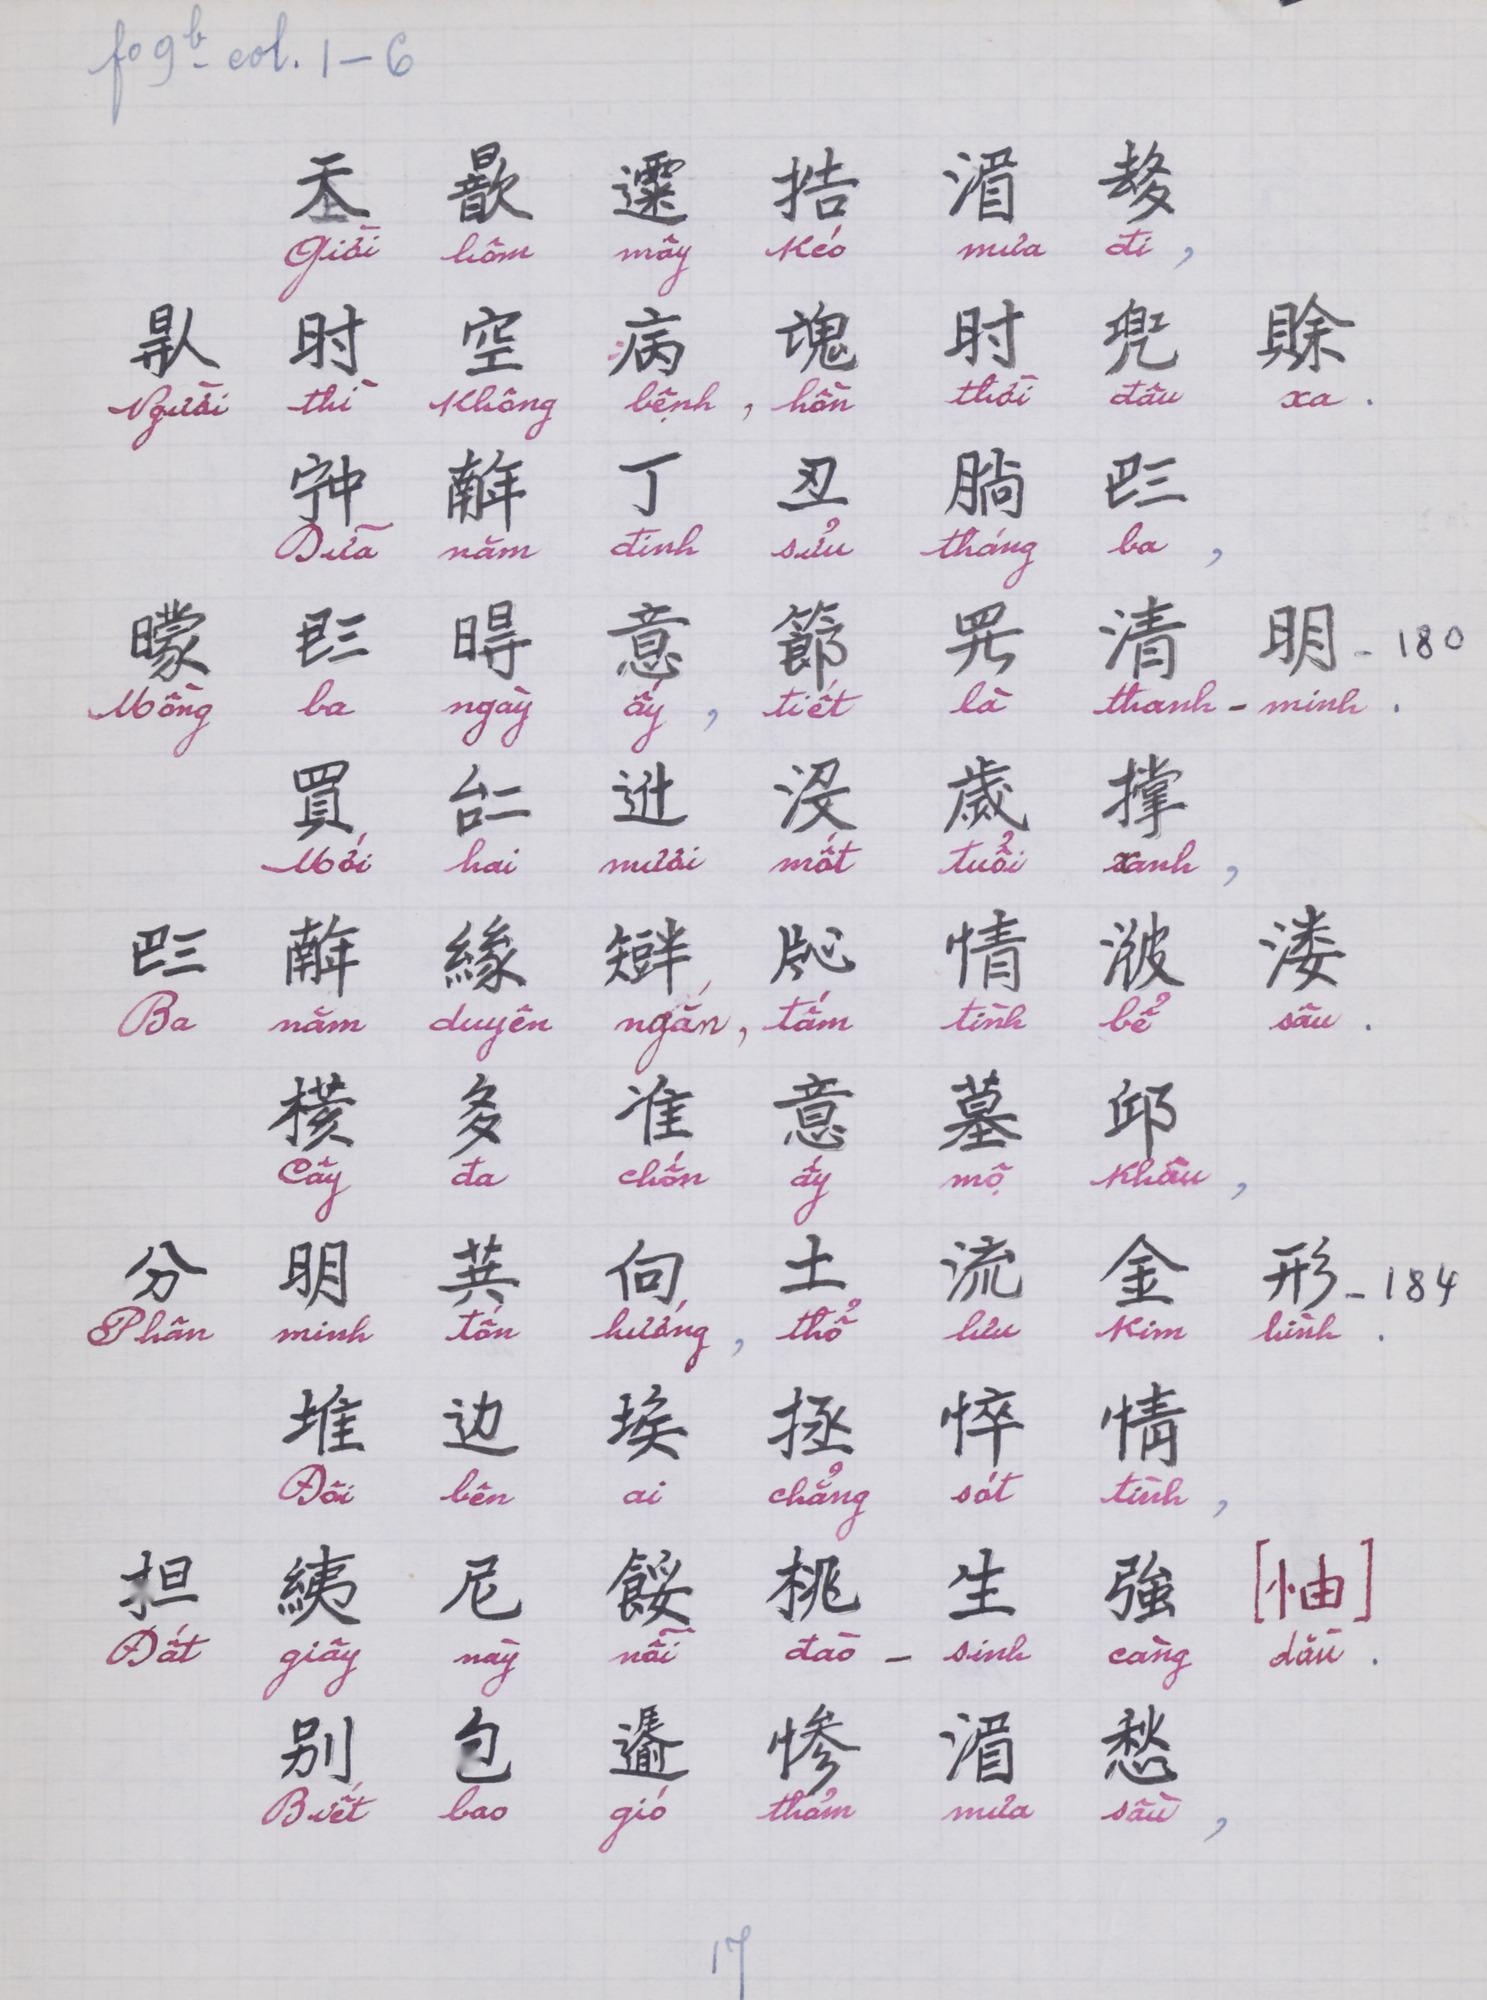 fo 9b col. 1-6
𡗶 歆 𩄲 𢫑 湄 𠫾
Giời hôm mây kéo mưa đi,
𠊛 时 空 病 魂 时 兜 賒
Người thì không bệnh, hồn thời đâu xa.
𡨌 𢆥 丁 丑 𣎃 𠀧
Dưã năm đinh sửu tháng ba,
𣋼 𠀧 𣈜 意 節 𱺵 清 明 - 180
Mồng ba ngày ấy, tiết là thanh-minh.
買 𠄩 𨑮 沒 歲 撑
Mới hai mươi một tuổi xanh,
𠀧 𢆥 緣 𥐆 𬌓 情 𣷷 溇
Ba năm duyên ngắn, tấm tình bể sâu.
𣘃 多 准 意 墓 邱
Cây đa chốn ấy mộ khâu,
分 明 巽 向 土 流 金 形 - 184
Phân minh tốn hướng, thổ lưu kim hình.
堆 边 埃 拯 悴 情
Đôi bên ai chẳng sót tình,
担 𦀊 尼 餒 桃 生 強 [怞]
Đất giây này nỗi đào-sinh càng dàu.
别 包 𨔍 惨 湄 愁
Biết bao gió thảm mưa sầu,
17